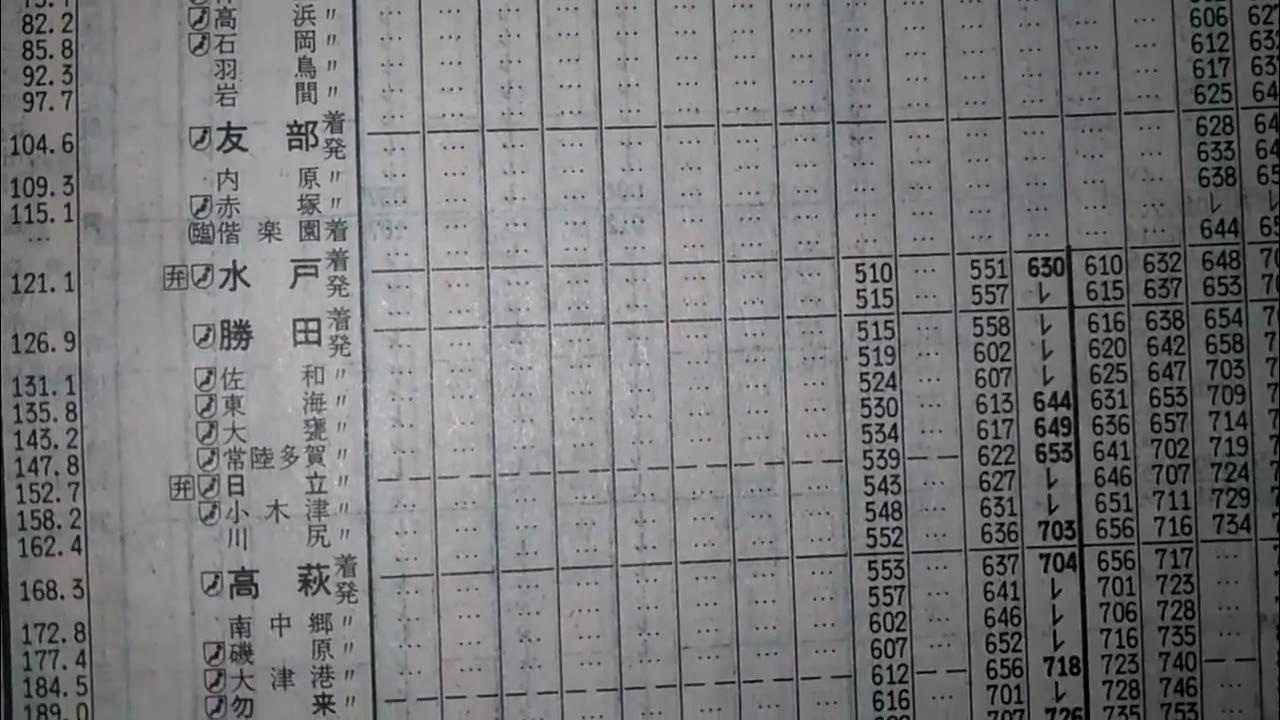 82.2 高浜〃 606
85.8 石岡〃 612
92.3 羽鳥〃 617
97.7 岩間〃 625
104.6 友部着発 628
633
109.3 内原〃 638
115.1 赤塚〃
… (臨)偕楽園着 644
121.1 弁 水戸着発 510 … 551 630 610 632 648
515 … 557 615 637 653
126.9 勝田着発 515 … 558 616 638 654
519 … 602 620 642 658
131.1 佐和〃 524 … 607 625 647 703
135.8 東海〃 530 … 613 644 631 653 709
143.2 大甕〃 534 … 617 649 636 657 714
147.8 常陸多賀〃 539 622 653 641 702 719
152.7 弁 日立〃 543 … 627 646 707 724
158.2 小木津〃 548 … 631 651 711 729
162.4 川尻〃 552 … 636 703 656 716 734
168.3 高萩着発 553 … 637 704 656 717 …
557 … 641 701 723 …
172.8 南中郷〃 602 … 646 706 728 …
177.4 磯原〃 607 … 652 716 735 …
184.5 大津港〃 612 656 718 723 740
189.0 勿来〃 616 … 701 728 746 …
707 726 735 753